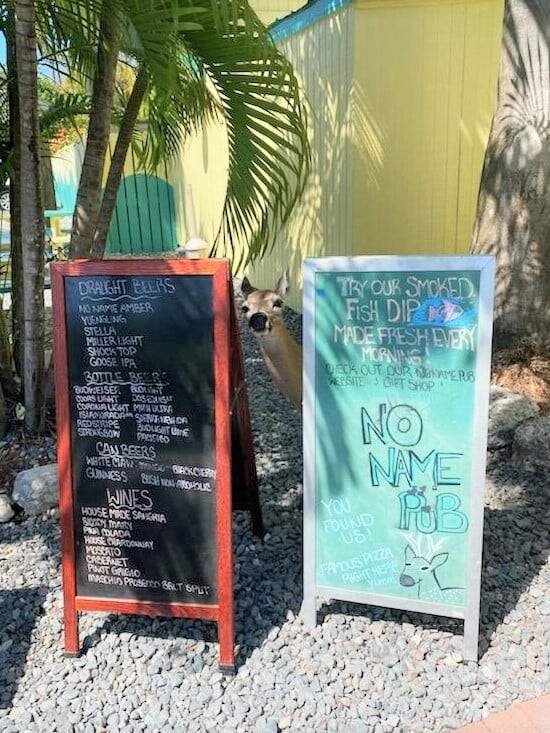 DRAUGHT BEERS
NO NAME AMBER
YUENGLING
STELLA
MILLER LIGHT
SHOCK TOP
GOOSE IPA
BOTTLE BEERS
BUDWEISER BUD LIGHT
COORS LIGHT DOS EQUIS
CORONA LIGHT MICH ULTRA
ISLAMORADA SIERRA NEVADA
REDSTRIPE BUDLIGHT LIME
STRONGBOW PACIFICO
CAN BEERS
WHITE CLAW MANGO BLACKCHERRY
GUINNESS BUSH NON ALCOHOLIC
WINES
HOUSE MADE SANGRIA
BLOODY MARY
PINA COLADA
HOUSE CHARDONNAY
MOSCATO
CABERNET
PINOT GRIGIO
PROSECCO SPLIT
TRY OUR SMOKED
FISH DIP
MADE FRESH EVERY
MORNING!
CHECK OUT OUR NONAMEPUB
WEBSITE & GIFT SHOP
NO
NAME
PUB
YOU
FOUND
US!
FAMOUS PIZZA
RIGHT HERE